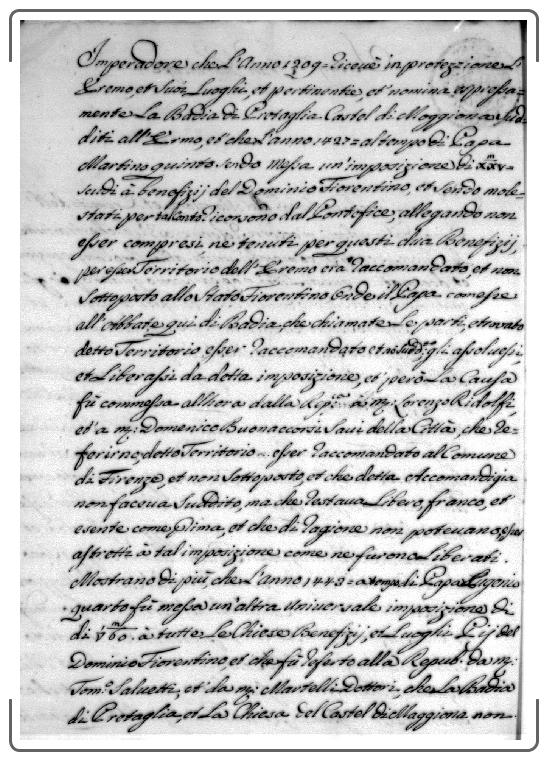 Imperadore che l'Anno 1209 = riceuè in protezzione L'
Eremo, et suoi Luoghi, et pertinentie et nomina espressa=
mente La Badia di Pretaglia Castel di Moggiona Sud=
diti all'Ermo, et che l'anno 1427 = al tempo di Papa
Martino quinto sendo messa un'imposizione di xxv m
scudi à benefizij del Dominio Fiorentino, et sendo mole=
stati per tal conto ricorsono dal Pontefice, allegando non
esser compresi, ne tenuti per questi dua Benefizij,
per esser Territorio dell'Eremo era raccomandato, et non
sottoposto allo Stato Fiorentino onde il Papa comesse
all'Abbate qui di Badia, che chiamate Le parti, e trovato
detto Territorio esser raccomandato et no Sudd.° gli assoluessi,
et Liberassi da detta imposizione, et però La Causa
fù commessa allhora dalla Rep.ca à m: Lorenzo Ridolfi,
et à m: Domenico Buonaccorsi Saui della Città, che re=
ferirno, detto Territorio esser raccomandato al Comune
di Firenze, et non sottoposto, et che detta Accomandigia
non faceua Suddito, ma che restaua Libero, franco, et
esente come Prima, et che di ragione non poteuano esser
astretti à tal imposizione come ne furono Liberati
Mostrano di più, che L'anno 1443 = a tempo di Papa Eugenio
quarto fù messa un'altra Uniuersale imposizione di
di V 60 m à tutte Le Chiese Benefizij, et Luoghi Pij del
Dominio Fiorentino, et che fù referto alla Repub.ca da m:
Tom.° Saluetti, et da m: Martelli Dottori, che La Badia
di Pretaglia, et La Chiesa del Castel di Maggiona non